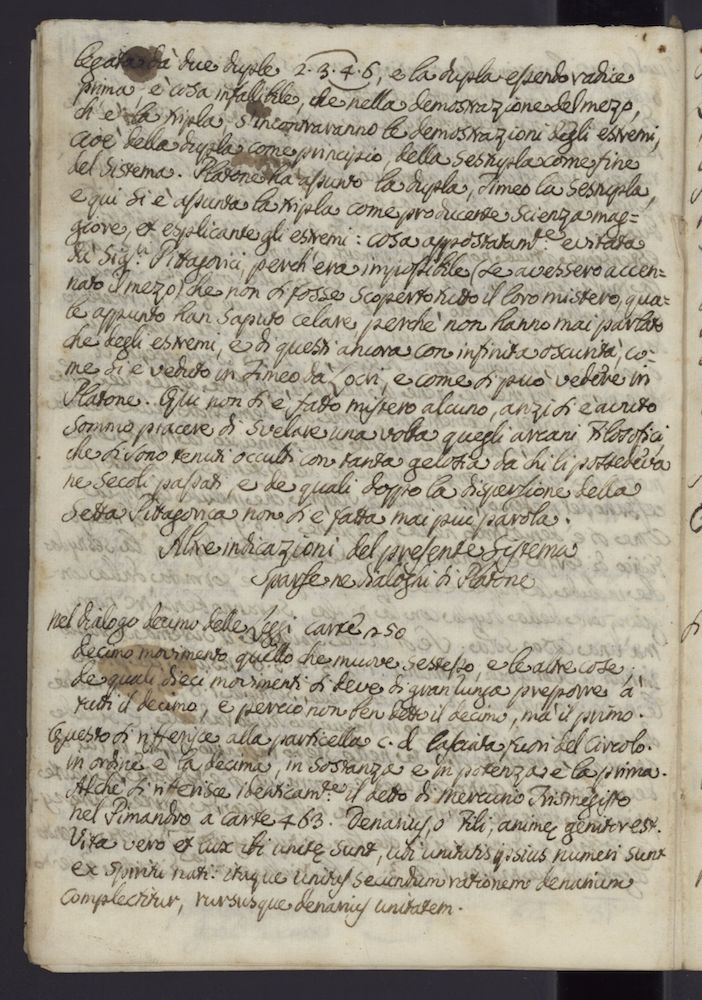 legata da due duple 2. 3. 4. 6, e la dupla essendo radice
prima, è cosa infallibile, che nella demostrazione del mezo,
ch'è la tripla s'incontraranno le demostrazioni degli estremi,
cioè della dupla come principio, della sestupla come fine
del Sistema. Platone ha assunto la dupla, Timeo la sestupla,
e qui si è assunta la tripla come producente scienza mag=
giore, et esplicante gli estremi: cosa appostatam.te evitata
da Sig.ri Pittagorici, perch'era impossibile (se avessero accen=
nato il mezo) che non si fosse scoperto tutto il loro mistero, qua=
le appunto han saputo celare, perchè non hanno mai parlato
che degli estremi, e di questi ancora con infinita oscurità, co=
me si è veduto in Timeo da Locri, e come si può vedere in
Platone. Qui non si è fatto mistero alcuno, anzi si è avuto
sommo piacere di svelare una volta quegli arcani Filosofici
che si sono tenuti occulti con tanta gelosia da chi li possedeva
ne secoli passati, e de quali doppo la dispersione della
Setta Pitagorica non si è fatta mai più parola.
Altre indicazioni del presente Sistema
sparse ne Dialoghi di Platone
nel Dialogo decimo delle Leggi carte 250
decimo movimento quello che muove se stesso e le altre cose;
de quali dieci movimenti si deve di gran lunga preporre à
tutti il decimo, e perciò non ben detto il decimo, mà il primo.
Questo si riferisce alla particella c. d. lasciata fuori del Circolo.
in ordine è la decima, in sostanza e in potenza è la prima.
Alche si riferisce identicam.te il detto di Mercurio Trismegisto
nel Pimandro à carte 463. Denarius, ò Fili, animę genitor est.
Vita verò et lux ibi unitę sunt, ubi unitatis ipsius numeri sunt
ex spiritu nati: itaque unitas secundum rationem denarium
complectitur, rursusque denarius unitatem.